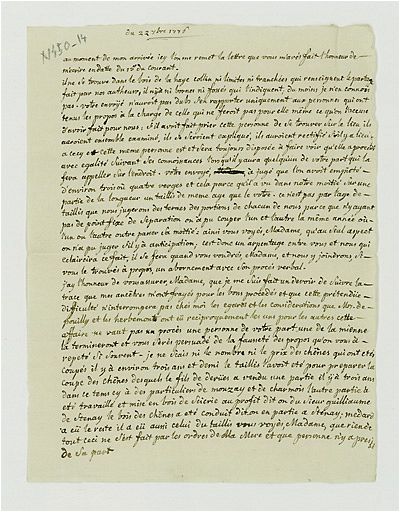 du 22 xbre 1776
N450-14
au moment de mon arrivée icy l'on me remet la lettre que vous m'avés fait l'honneur de
m'ecrire en datte du du courant.
il ne se trouve dans le bois de la haye collin ni limites ni tranchées qui renseignent le partage
fait par nos autheurs, il n'y a ni bornes ni fossés qui l'indiquent, du moins je n'en connois
pas. votre envoyé n'auroit pas dû s'en rapporter uniquement aux personnes qui ont
tenus les propos à la charge de celle qui ne feroit pas pour elle même ce qu'on l'accuse
d'avoir fait pour nous; s'il avoit fait prier cette personne de se trouver sur le lieu ils
auroient ensemble examiné, ils se seroient expliqué, ils auroient rectifié s'il y a lieu,
a cecy et cette meme personne est et sera toujours disposée à faire voir qu'elle a procedé
avec egalité suivant ses connoissances lorsqu'il y aura quelqu'un de votre part qui la
fera appeller sur l'endroit. votre envoyé a jugé que l'on avoit empieté
d'environ trois ou quatre verges et cela parce qu'il a vu dans notre moitié sur une
partie de la longueur un taillis de meme age que le votre. ce n'est pas par l'age de
taillis que nous jugerons des termes des portions de chacun de nous parce que n'y ayant
pas de point fixe de separation on a pu couper l'un et l'autre la même année où
l'un ou l'autre outre passer sa moitié: ainsi vous voyés, Madame, qu'au seul aspect
on n'a pu juger s'il y a anticipation. c'est donc un arpentage entre vous et nous qui
eclaircira ce fait, il se fera quand vous voudrés Madame, et nous y joindrons, si
vous le trouvés à propos un abornement avec son procés verbal.
j'ay l'honneur de vous assurer, Madame, que je me suis fait un devoir de suivre la
trace que mes ancêtres m'ont frayés pour les bons procedés et que cette prétendue
difficulté n'interrompera pas chés moi les egards et les considerations que Mrs de
pouilly et les herbemont ont eü reciproquement les uns pour les autres cette
affaire ne vaut pas un procés une personne de votre part une de la mienne
la termineront et vous serés persuadé de la fausseté des propos qu'on vous a
repeté si souvent. je ne scais ni le nombre ni le prix des chênes qui ont eté
coupés il y a environ trois ans et demi le taillis l'avoit eté pour preparer la
coupe des chênes desquels le fils de a vendu une partie il y a trois ans
dans le tems et à des particuliers de mouzay et de charmois l'autre partie a
eté travaillé et mise en bois de scierie au profit dit on du sieur guilliaume
de stenay le bois des chênes a eté conduit dit on en partie a stenay, medard
a eü le reste il a eü aussi celui du taillis vous voyés Madame, que rien de
tout ceci ne s'est fait par les ordres de Ma Mere et que personne n'y a
de sa part